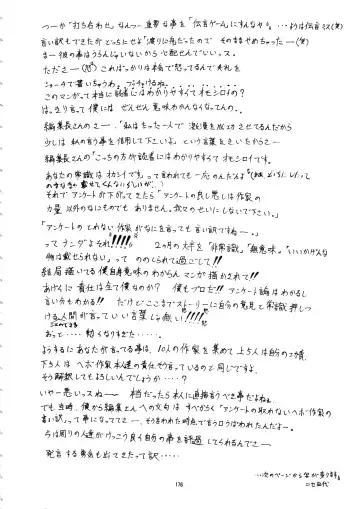 つーか"打ち合わせ"なんつー重要な事を「伝言ゲーム」にすんなや。…ようは伝言ミス(笑)
言い訳もできたが どっちにせよ「渡りに舟だったので そのままやめちゃったー(笑)
まー彼の事はうらんじゃいないから心配せんでいいっス。
たださー これはっかりは本格で怒ってるんで失礼を
ショーチで書いちゃうわ。ブッちゃけるね。……
このマンガって本当に読者にはわかりやすくてオモシロイの?
はっきり言って僕には ぜんぜん意味わかんなくなってんの..
編集長さんのさー.「私はたった一人で 激漫を成功させてるんだから
少しは私の言う事を信用して下さいよ」という言葉をきいたからさー
編集長さんの「こっちの方が読者にはわかりやすくてオモシロイです。
あなたの常識はオカシイです。」って言われても一応のんだんよ
それで アンケートが下がってきたら「アンケートの良し悪しは作家の
力量 以外のなにものでもありません。我々のせいにしないで下さい。」
「アンケートのとれない作家がなにを言っても言い訳ですね…。」
ってナンダよそれ!!!! 2ヵ月の大半を「非常識」「無意味」"いいかげんな
物は載せられない」って ののしられて過ごして!!
結局描いてる僕自身意味のわからんマンガ描かされて!!
あげくに責任は全て僕なのか? 僕もプロだ!! アンケート論はわかるし
言い分もわかる!! だけどここまでストーリーに自分の意見と常識押しつ
ける人間が言っていい言葉じゃ無い!!!!
おっと……熱くなりすぎた……。
ようするにあなたが言ってる事は、10人の作家を集めて上5人は自分の手柄、
下5人は ヘボ作家本人達の責任そう言っているのと同じですよ。
そう解釈してもよろしいんでしょうか……?
いやー悪いっスね〜 本当だったら本人に直接言うべき事だよね。
でも当時、僕から編集さんへの文句は すべからく「アンケートの取れないヘボ作家の
言い訳」って事になっててさー。そう言われた時点で言うコトはなかったんだよー。
今は周りの人達がけっこう良く自分の事を評価してくれるんでさー
発言する勇気も出てきたって訳……
…次のページから字が乗ります。
176